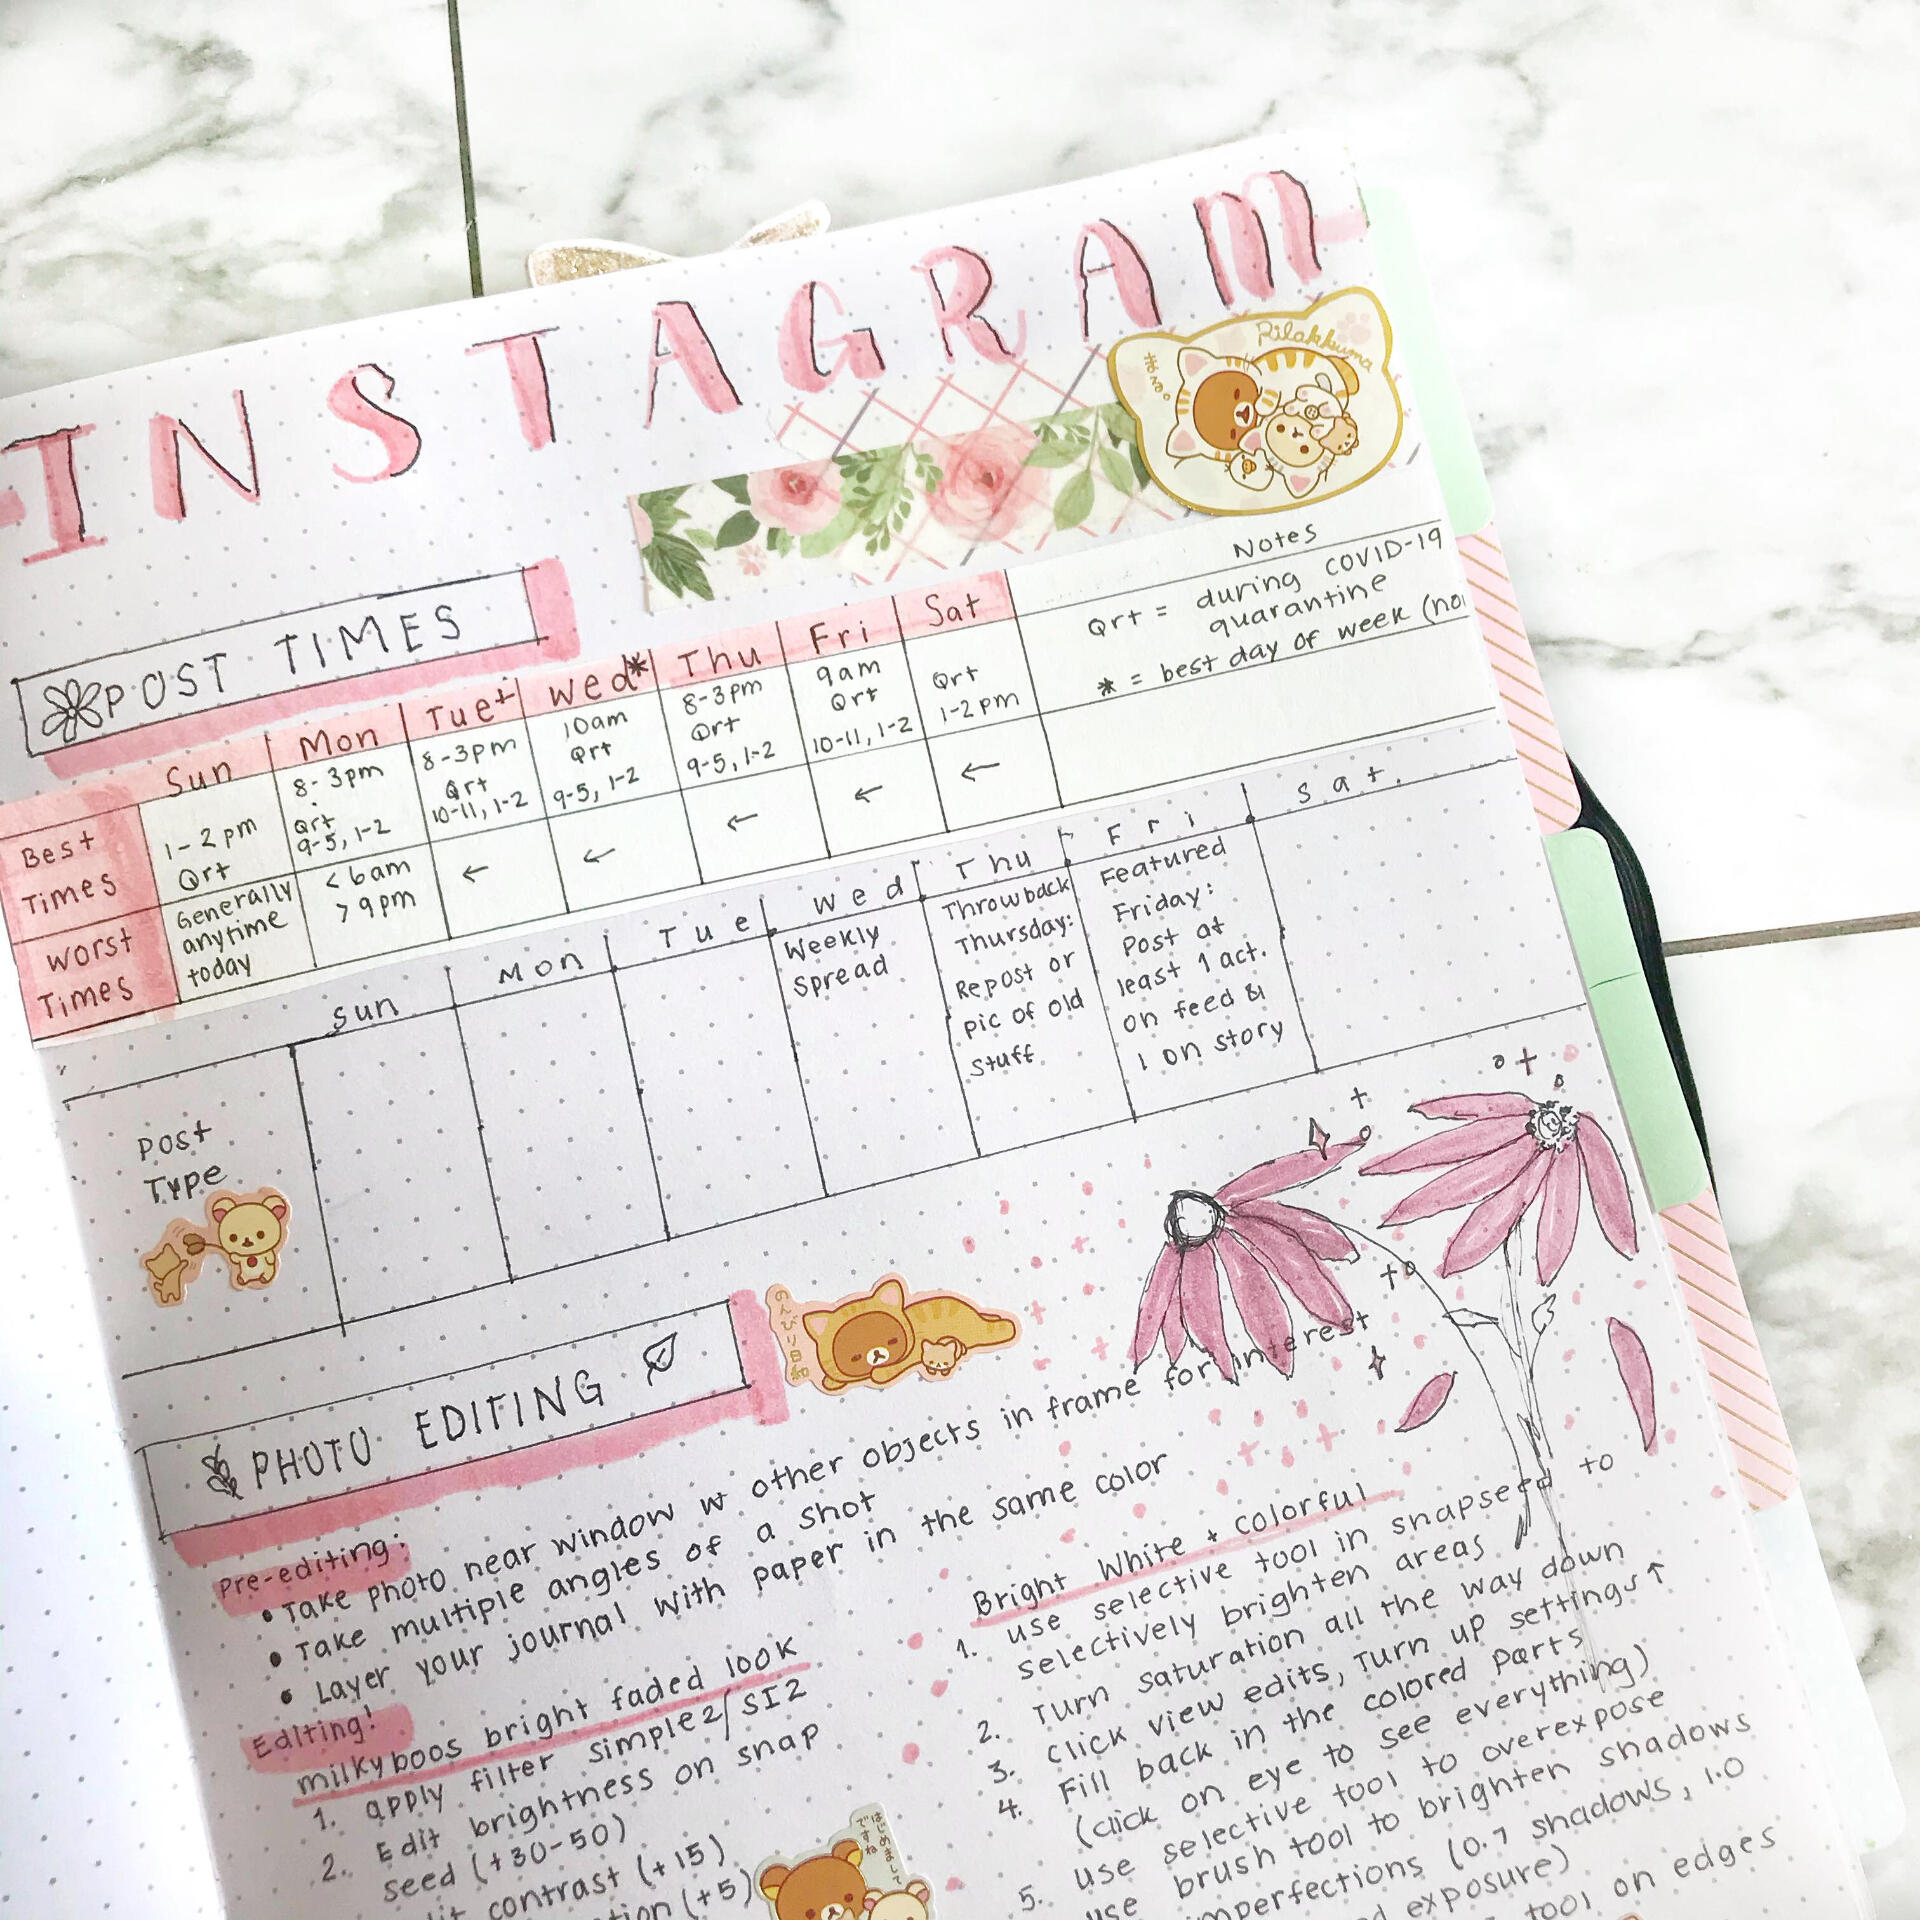 INSTAGRAM
Rilakkuma
POST TIMES
Notes
Qrt = during COVID-19
quarantine
* = best day of week
Sun Mon Tue+ Wed* Thu Fri Sat
Best
Times
1-2pm
Qrt
8-3pm
Qrt
9-5, 1-2
8-3pm
Qrt
10-11, 1-2
10am
Qrt
9-5, 1-2
8-3pm
Qrt
9-5, 1-2
9am
Qrt
10-11, 1-2
Qrt
1-2pm
Worst
Times
Generally
anytime
today
<6am
>9pm
← ← ← ← ←
Sun Mon Tue Wed Thu Fri Sat.
Post
Type
Weekly
Spread
Throwback
Thursday:
Repost or
pic of old
stuff
Featured
Friday:
Post at
least 1 act.
on feed &
1 on story
のんびり日和
PHOTO EDITING
Pre-editing:
• Take photo near window w other objects in frame for interest
• Take multiple angles of a shot
• Layer your journal with paper in the same color
Editing!
milkyboos bright faded look
1. apply filter simple2/SI2
2. Edit brightness on snap
seed (+30-50)
contrast (+15)
(+5)
はじめまして
ですね
Bright White + Colorful
1. use selective tool in snapseed to
selectively brighten areas
2. Turn saturation all the way down
3. Click view edits, Turn up settings ↑
4. Fill back in the colored parts
(click on eye to see everything)
use selective tool to overexpose
5. use brush tool to brighten shadows
imperfections (0.7 shadows, 1.0
exposure)
tool on edges